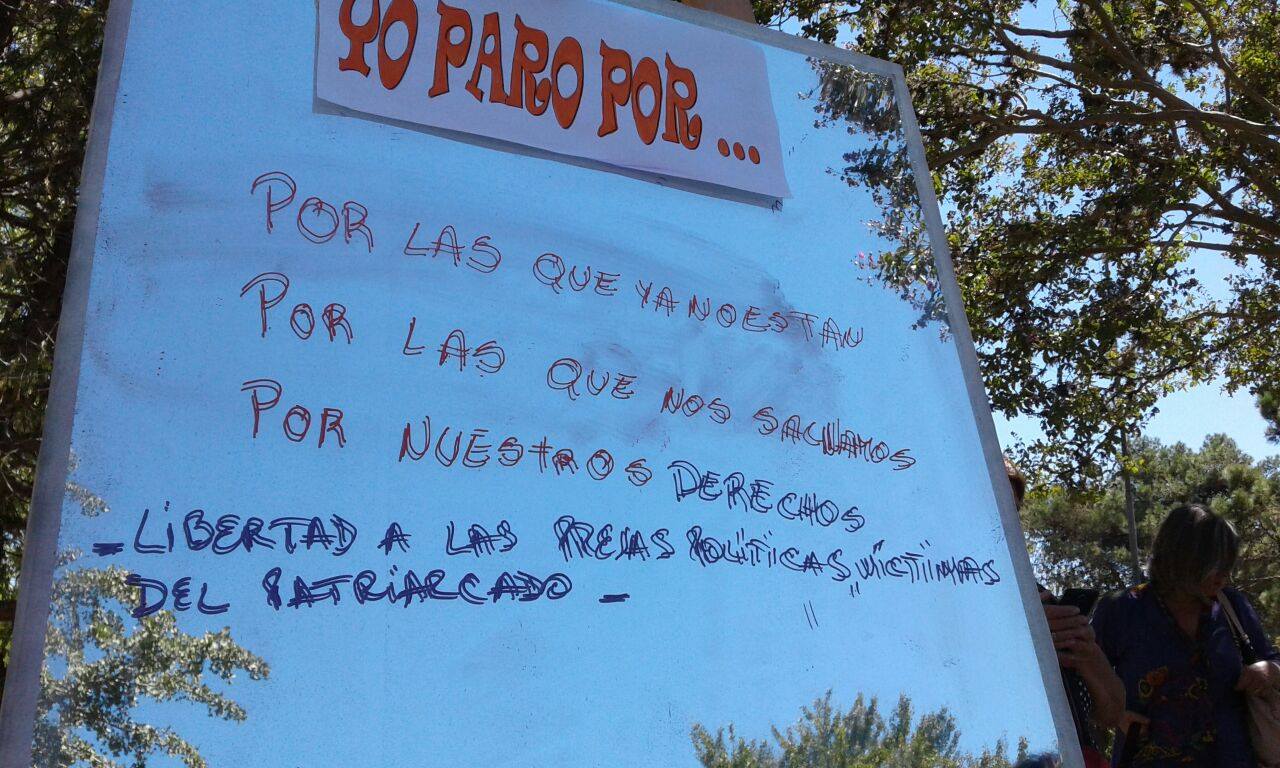 YO PARO POR...
POR LAS QUE YA NO ESTAN
POR LAS QUE NOS SALVAMOS
POR NUESTROS DERECHOS
- LIBERTAD A LAS PRESAS POLÍTICAS, VÍCTIMAS
DEL PATRIARCADO -